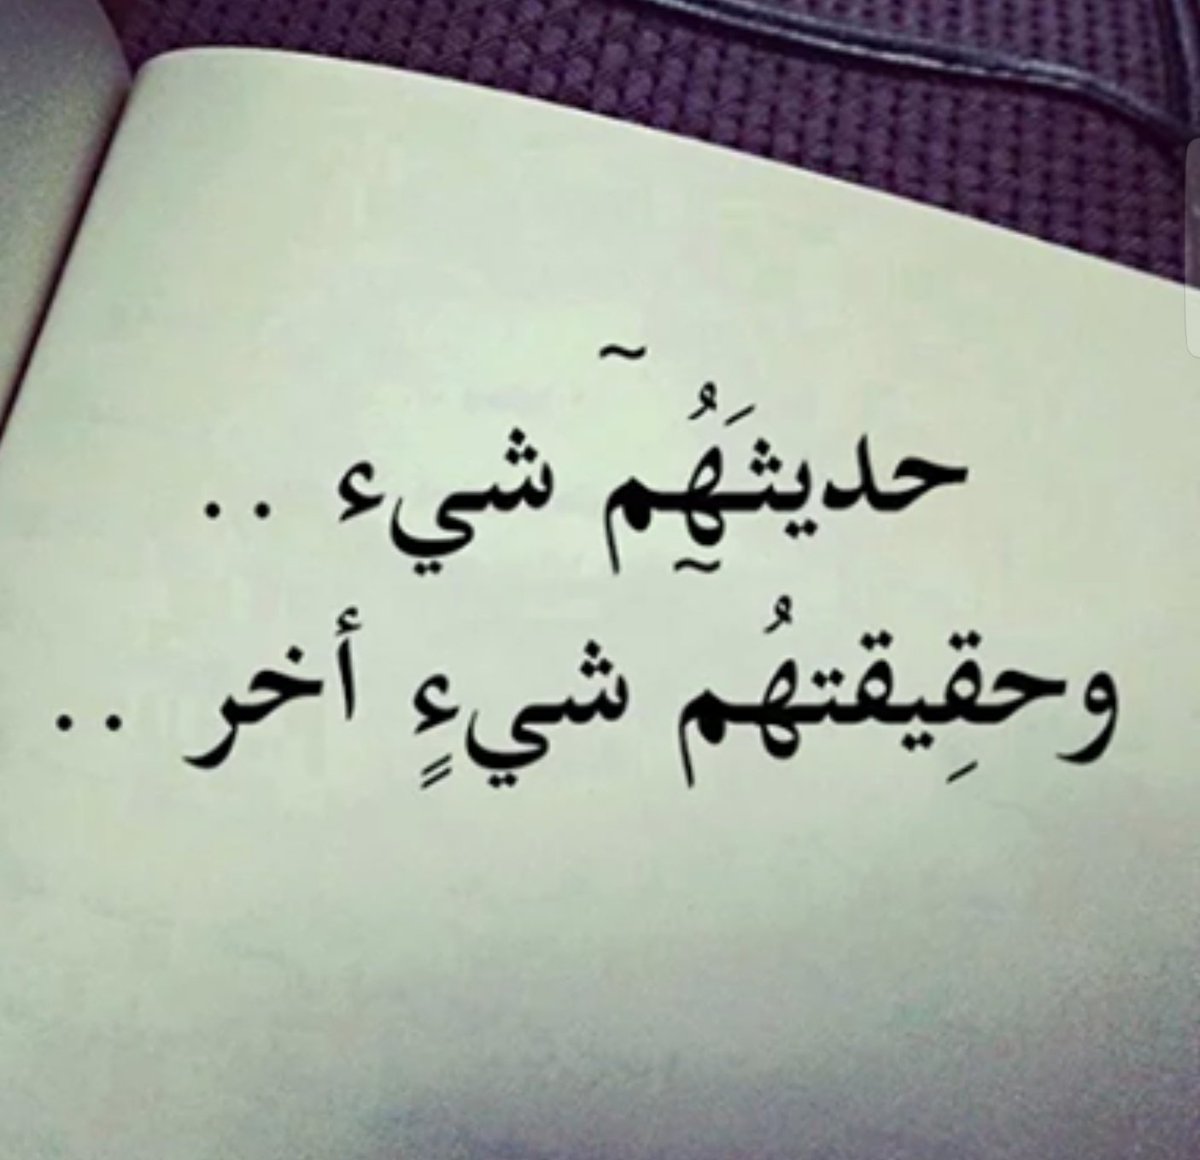 حديثهَُم شيء ..
وحقِيقتهُم شيءٍ أخر ..